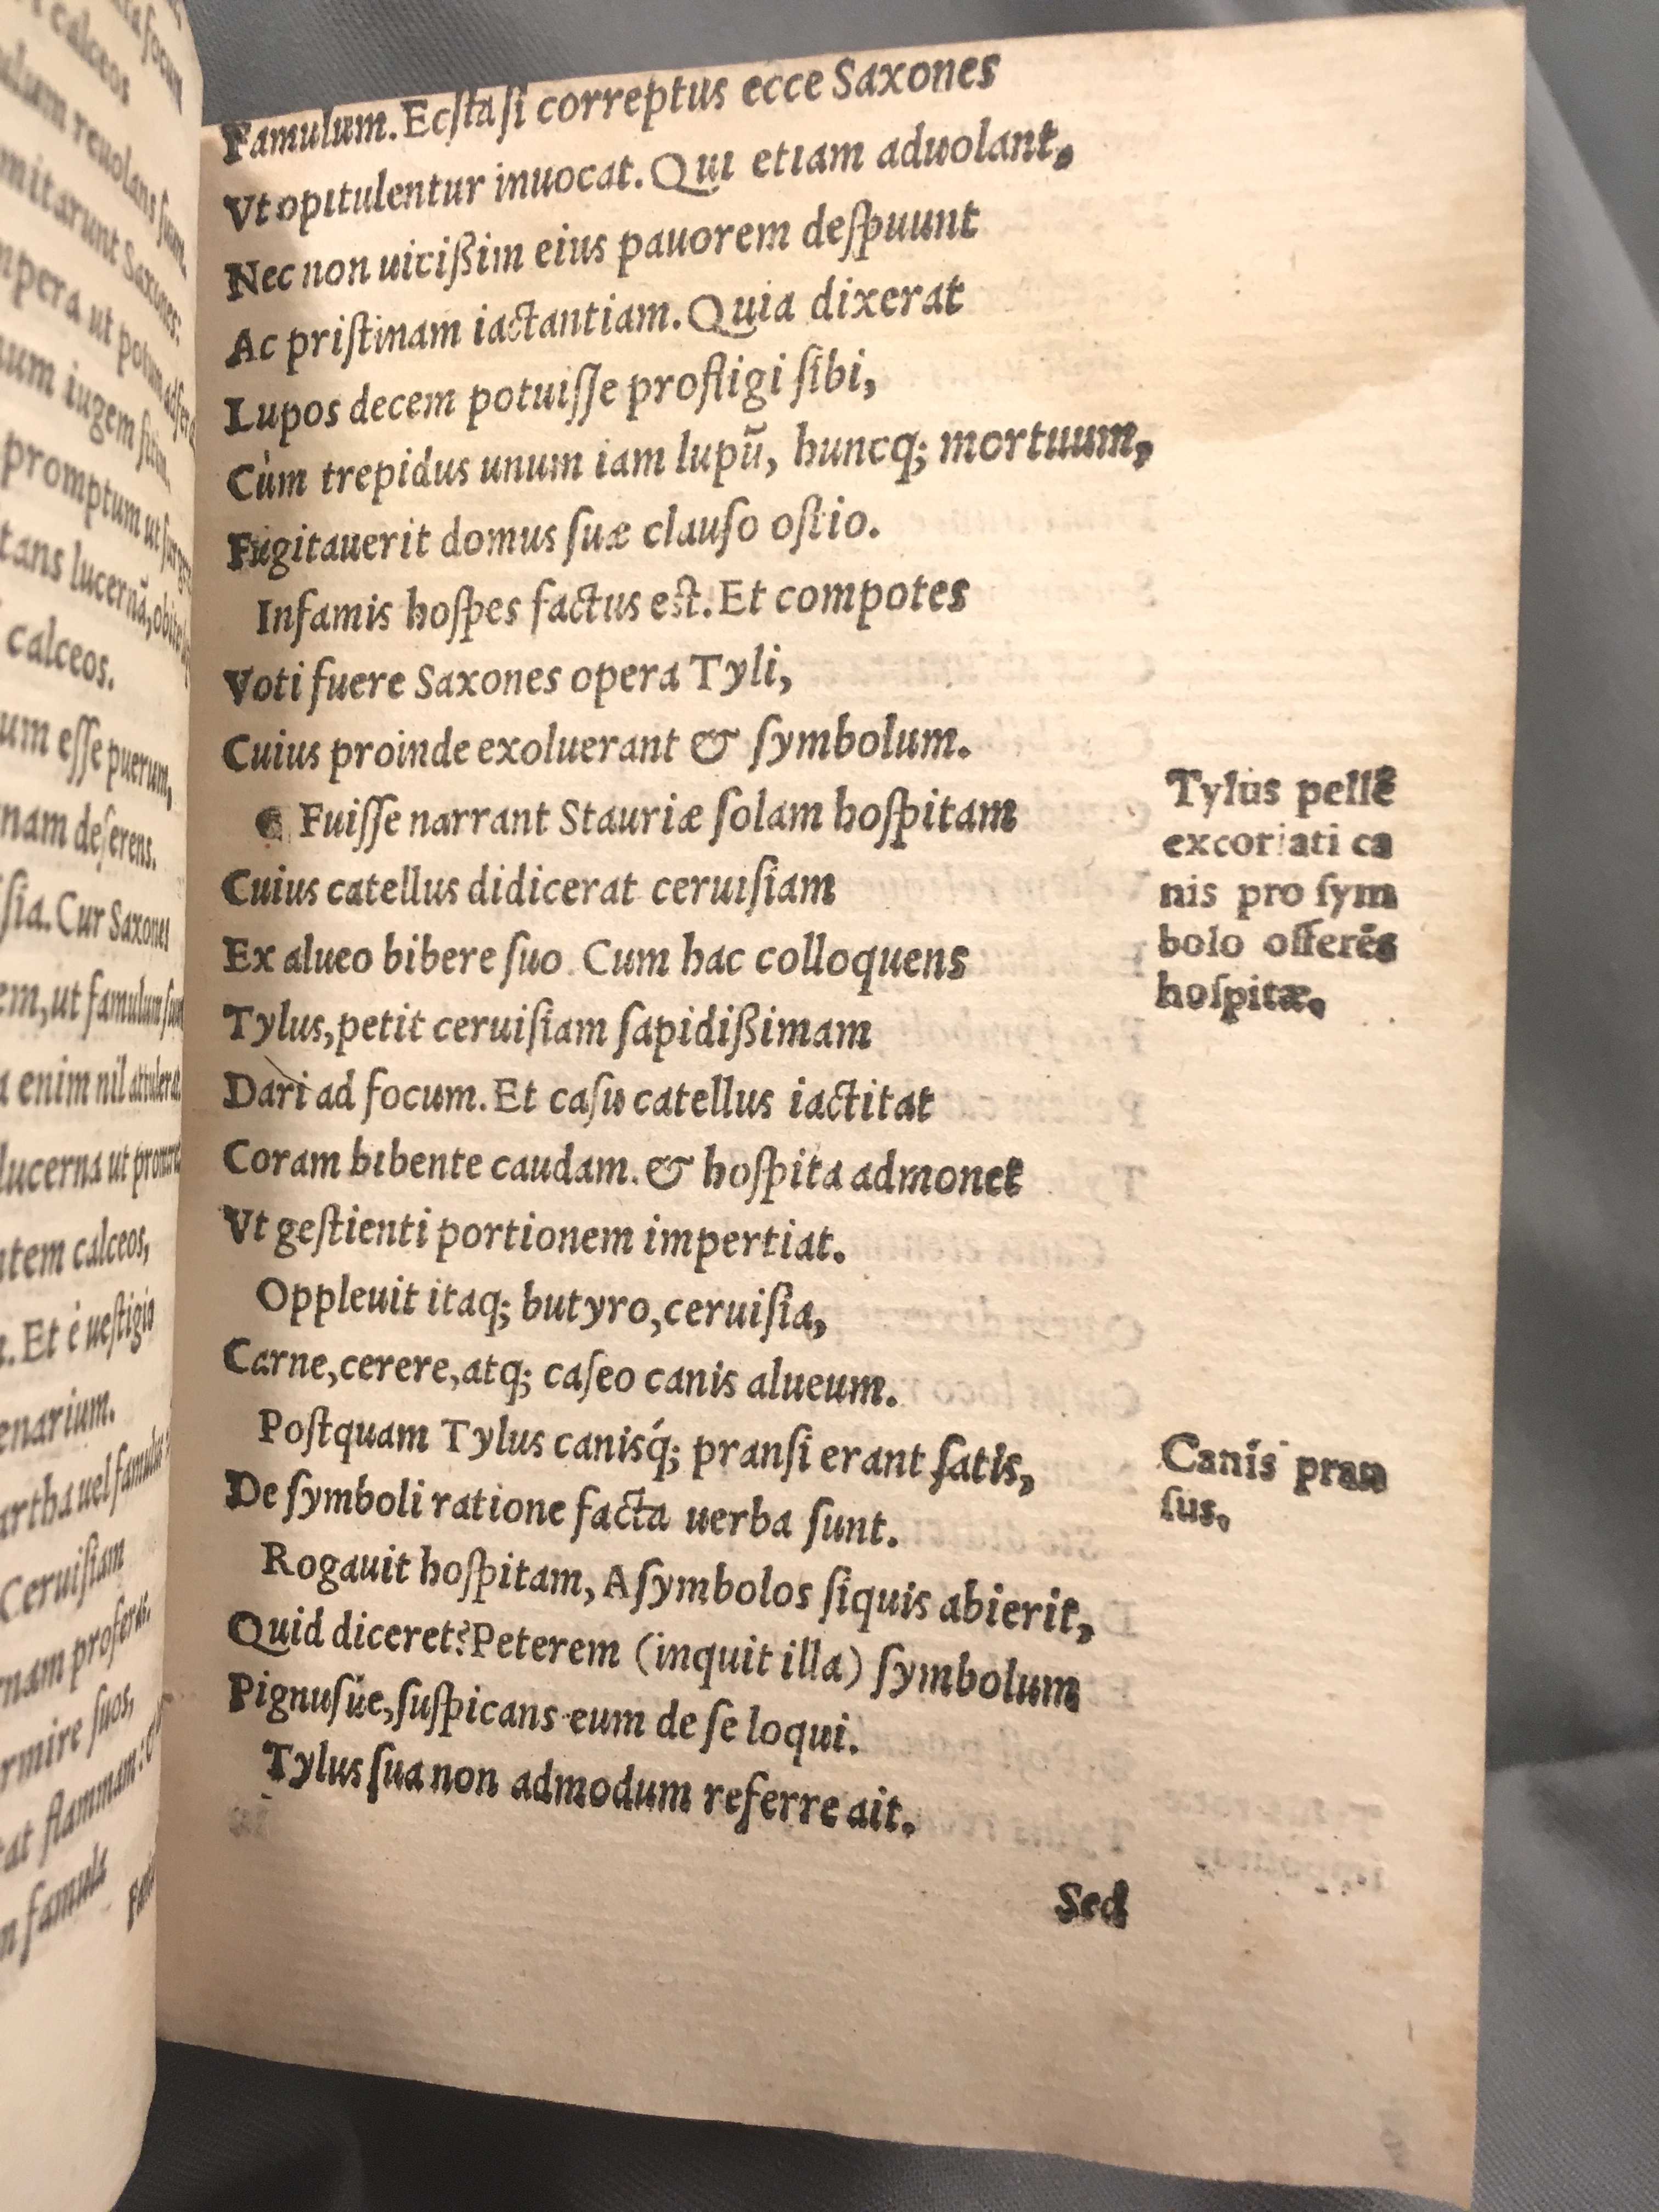 Famulum. Ecſtaſi correptus ecce Saxones
Vt opitulentur inuocat. Qui etiam aduolant,
Nec non uiciſſim eius pauorem deſpuunt
Ac priſtinam iactantiam. Quia dixerat
Lupos decem potuiſſe profligi ſibi,
Cùm trepidus unum iam lupū, huncq; mortuum,
Fugitauerit domus ſuæ clauſo oſtio.
Infamis hoſpes factus eſt. Et compotes
Voti fuere Saxones opera Tyli,
Cuius proinde exoluerant & ſymbolum.
Fuiſſe narrant Stauriæ ſolam hoſpitam
Cuius catellus didicerat ceruiſiam
Ex alueo bibere ſuo. Cum hac colloquens
Tylus, petit ceruiſiam ſapidiſſimam
Dari ad focum. Et caſu catellus iactitat
Coram bibente caudam. & hoſpita admonet
Vt geſtienti portionem impertiat.
Oppleuit itaq; butyro, ceruiſia,
Carne, cerere, atq; caſeo canis alueum.
Poſtquam Tylus canisq́; pranſi erant ſatis,
De ſymboli ratione facta uerba ſunt.
Rogauit hoſpitam, Aſymbolos ſiquis abierit,
Quid diceret? Peterem (inquit illa) ſymbolum
Pignusúe, ſuſpicans eum de ſe loqui.
Tylus ſua non admodum referre ait.
Sed
Tylus pellē
excoriati ca
nis pro ſym
bolo offerēs
hoſpitæ.
Canis pran
ſus.
calceos
mitarunt Saxones:
mpera ut potum
um iugem ſitim.
promptum ut
tans lucernā,
calceos.
um eſſe puerum,
nam deſerens.
ſia. Cur Saxones
em, ut famulum
enim nil
lucerna ut
tem calceos,
Et è ueſtigio
enarium.
uel
Ceruiſiam
nam proferas.
rmire ſuos,
flammam:
famuls